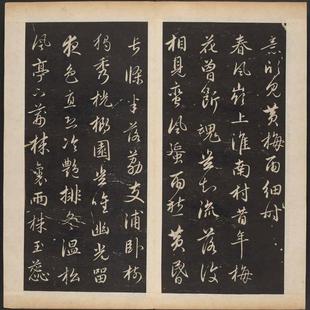 見黃梅雨細時
春風嶺上淮南村昔年梅
花曾斷魂豈知流落復
相見蠻風蜑雨愁黃昏
長條半落荔支浦臥樹
獨秀桄榔園豈惟幽光留
夜色直恐冷艷排冬溫松
風亭下荊棘裏兩株玉蕊